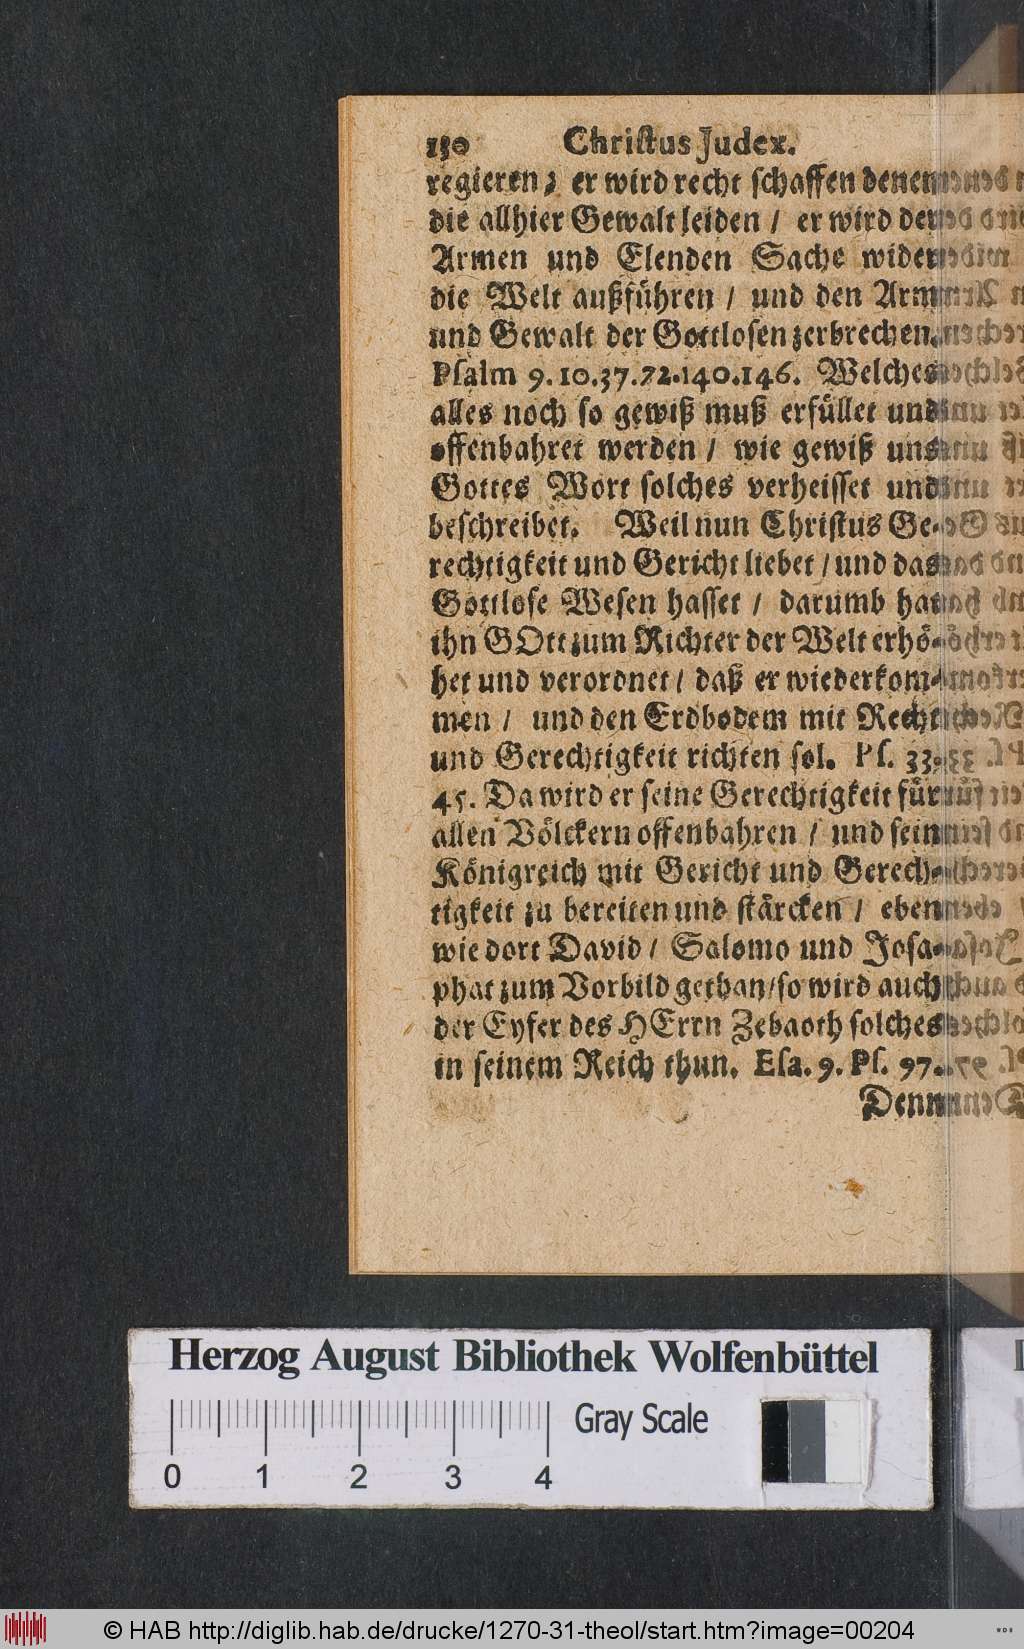 150 Christus Judex.
regieren; er wird recht schaffen denen
die allhier Gewalt leiden / er wird der
Armen und Elenden Sache wider
die Welt außführen / und den Arm
und Gewalt der Gottlosen zerbrechen.
Psalm 9.10.37.72.140.146. Welches
alles noch so gewiß muß erfüllet und
offenbahret werden / wie gewiß uns
Gottes Wort solches verheisset und
beschreibet. Weil nun Christus Ge-
rechtigkeit und Gericht liebet / und das
Gottlose Wesen hasset / darumb hat
ihn GOtt zum Richter der Welt erhö-
het und verordnet / daß er wiederkom-
men / und den Erdbodem mit Recht
und Gerechtigkeit richten sol. Ps. 33.
45. Da wird er seine Gerechtigkeit für
allen Völckern offenbahren / und sein
Königreich mit Gericht und Gerech-
tigkeit zu bereiten und stärcken / eben
wie dort David / Salomo und Josa-
phat zum Vorbild gethan/so wird auch
der Eyfer des HErrn Zebaoth solches
in seinem Reich thun. Esa. 9. Ps. 97.
Denn
Herzog August Bibliothek Wolfenbüttel
Gray Scale
0 1 2 3 4
© HAB http://diglib.hab.de/drucke/1270-31-theol/start.htm?image=00204